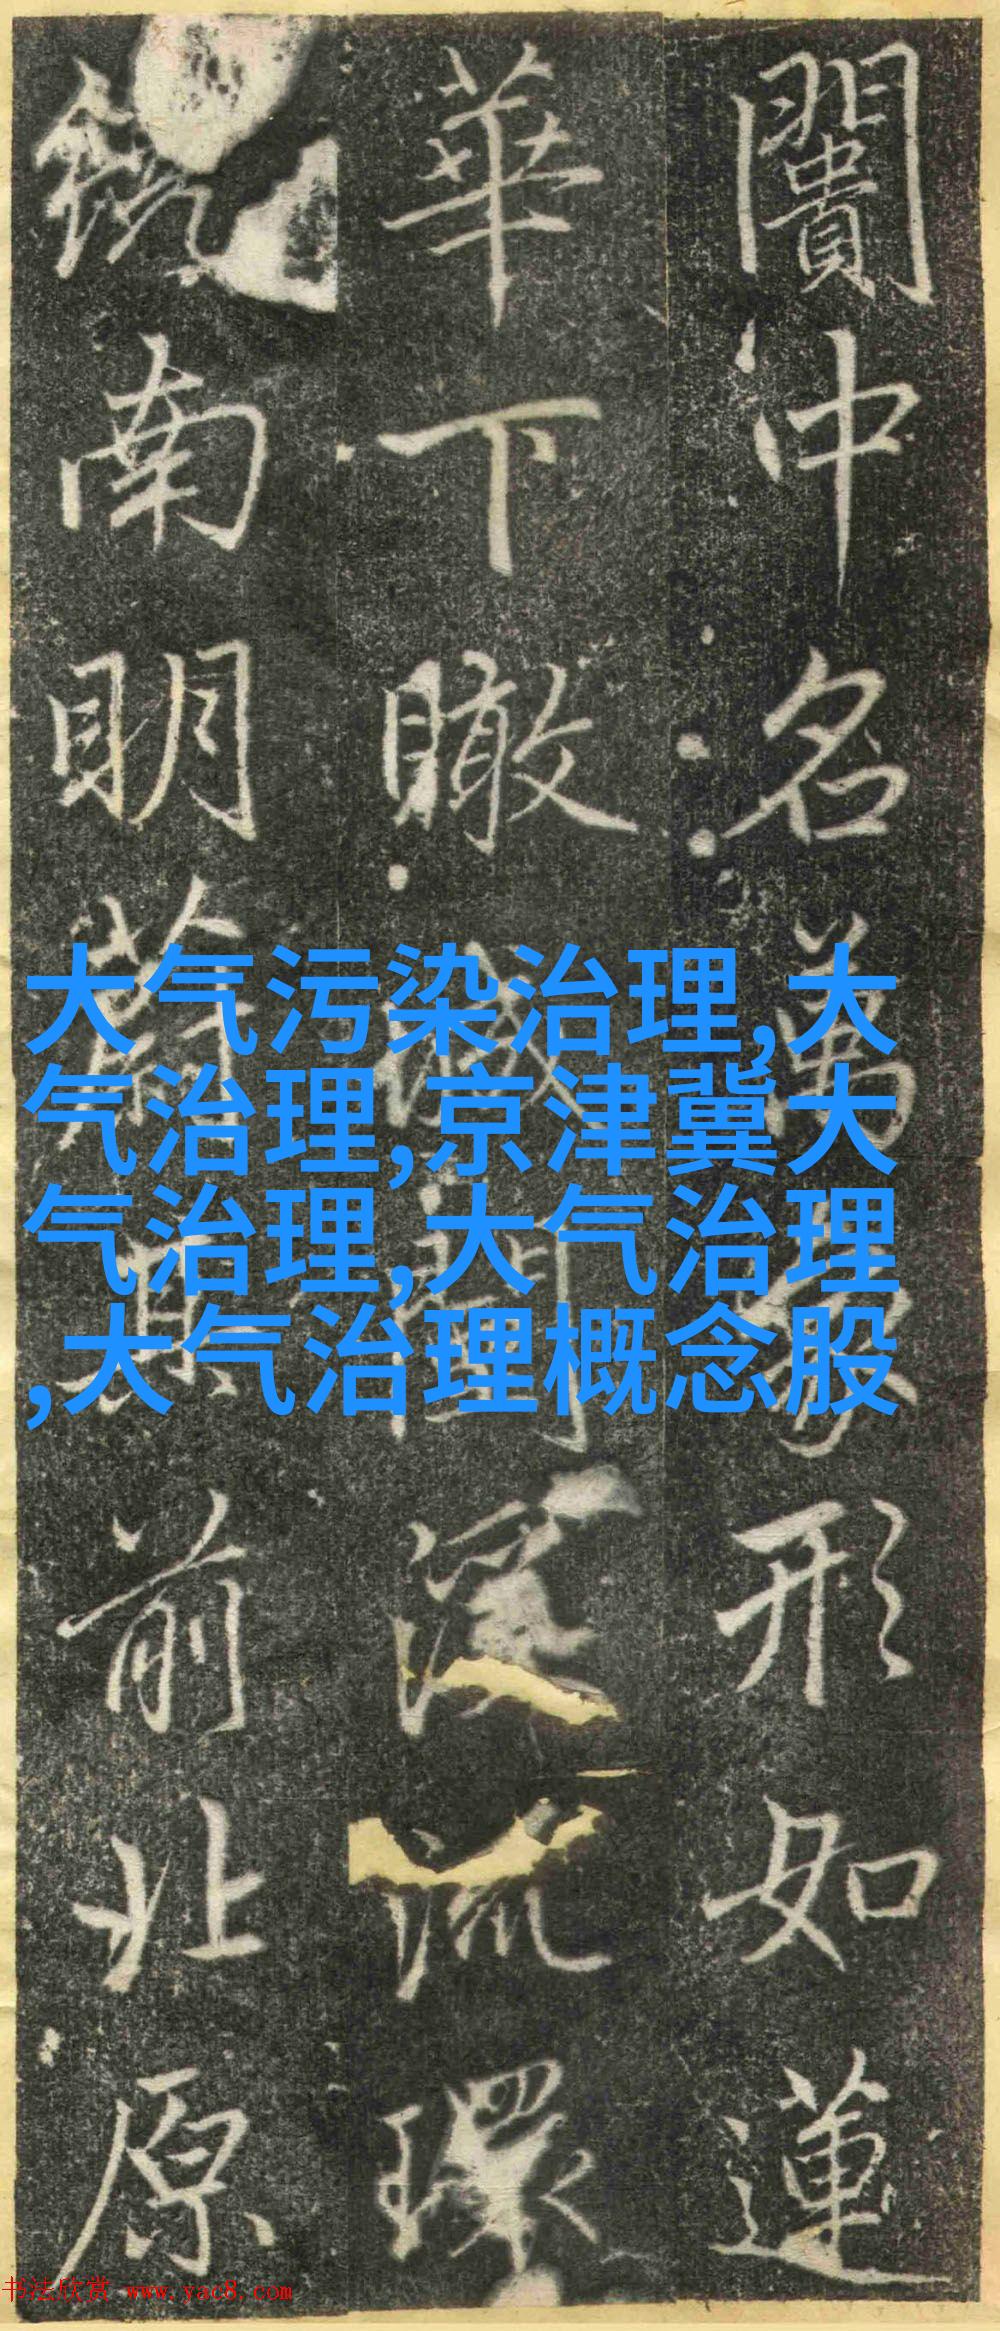 闠中名萬象形如蓮
華下瞰城闉深流環
鏡南明蕭其前北原
大气污染治理,大
气治理,京津冀大
气治理,大气治理
,大气治理概念股
书法欣赏 www.yac8.com